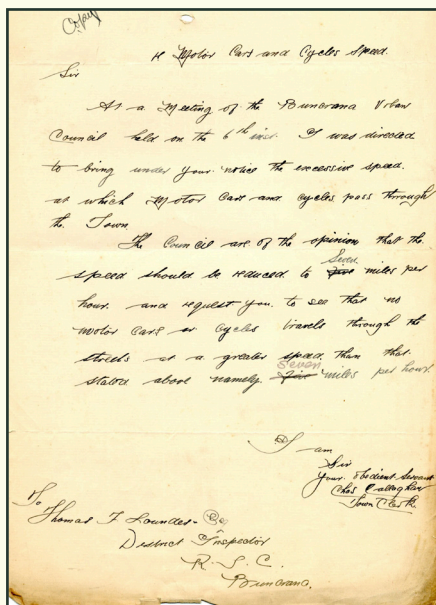 Copy
re Motor Cars and Cycles Speed.
Sir
At a Meeting of the Buncrana Urban
Council held on the 6th inst. I was directed
to bring under your notice the excessive speed.
at which Motor Cars and cycles pass through
the Town.
The Council are of the opinion that the
Seven
speed should be reduced to five miles per
hour. and request you to see that no
motor cars or cycles travels through the
streets at a greater speed than that
Seven
stated above namely five miles per hour.
I am
Sir
Your Obedient Servant
Chas O'Callaghan
Town Clerk
To
Thomas F Lounder Esq
District Inspector
R. I. C.
Buncrana.